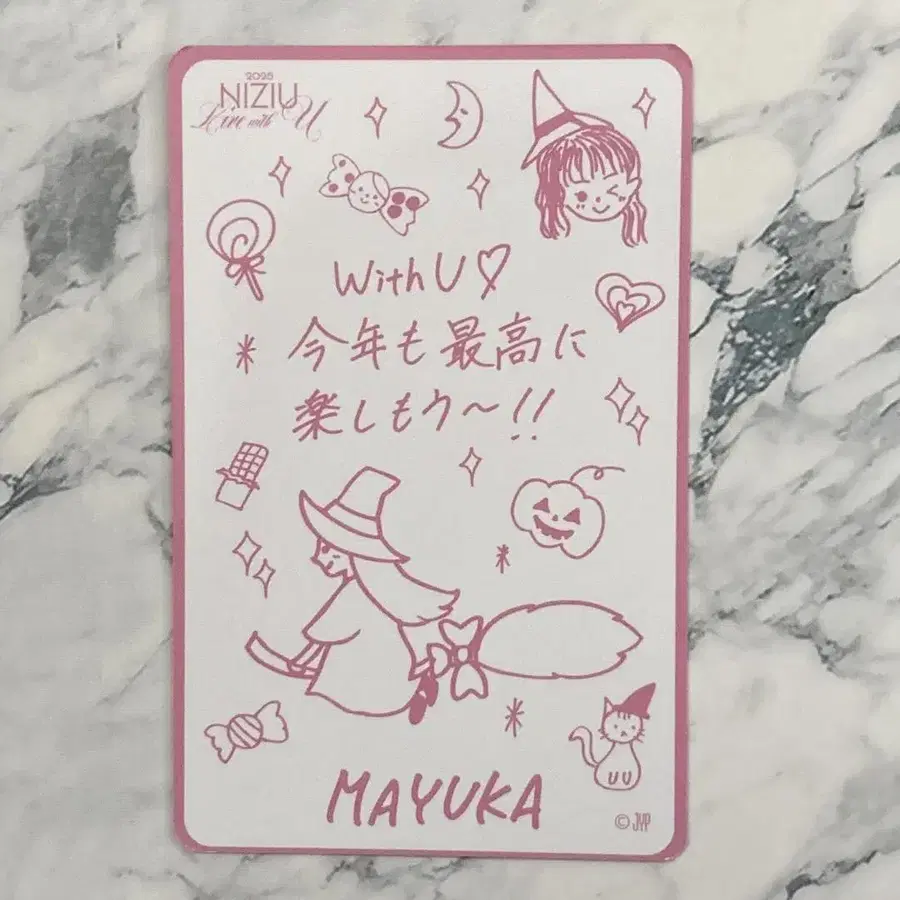 2025
NIZIU
Live with U
With U♡
今年も最高に
楽しもう〜!!
MAYUKA
© JYP